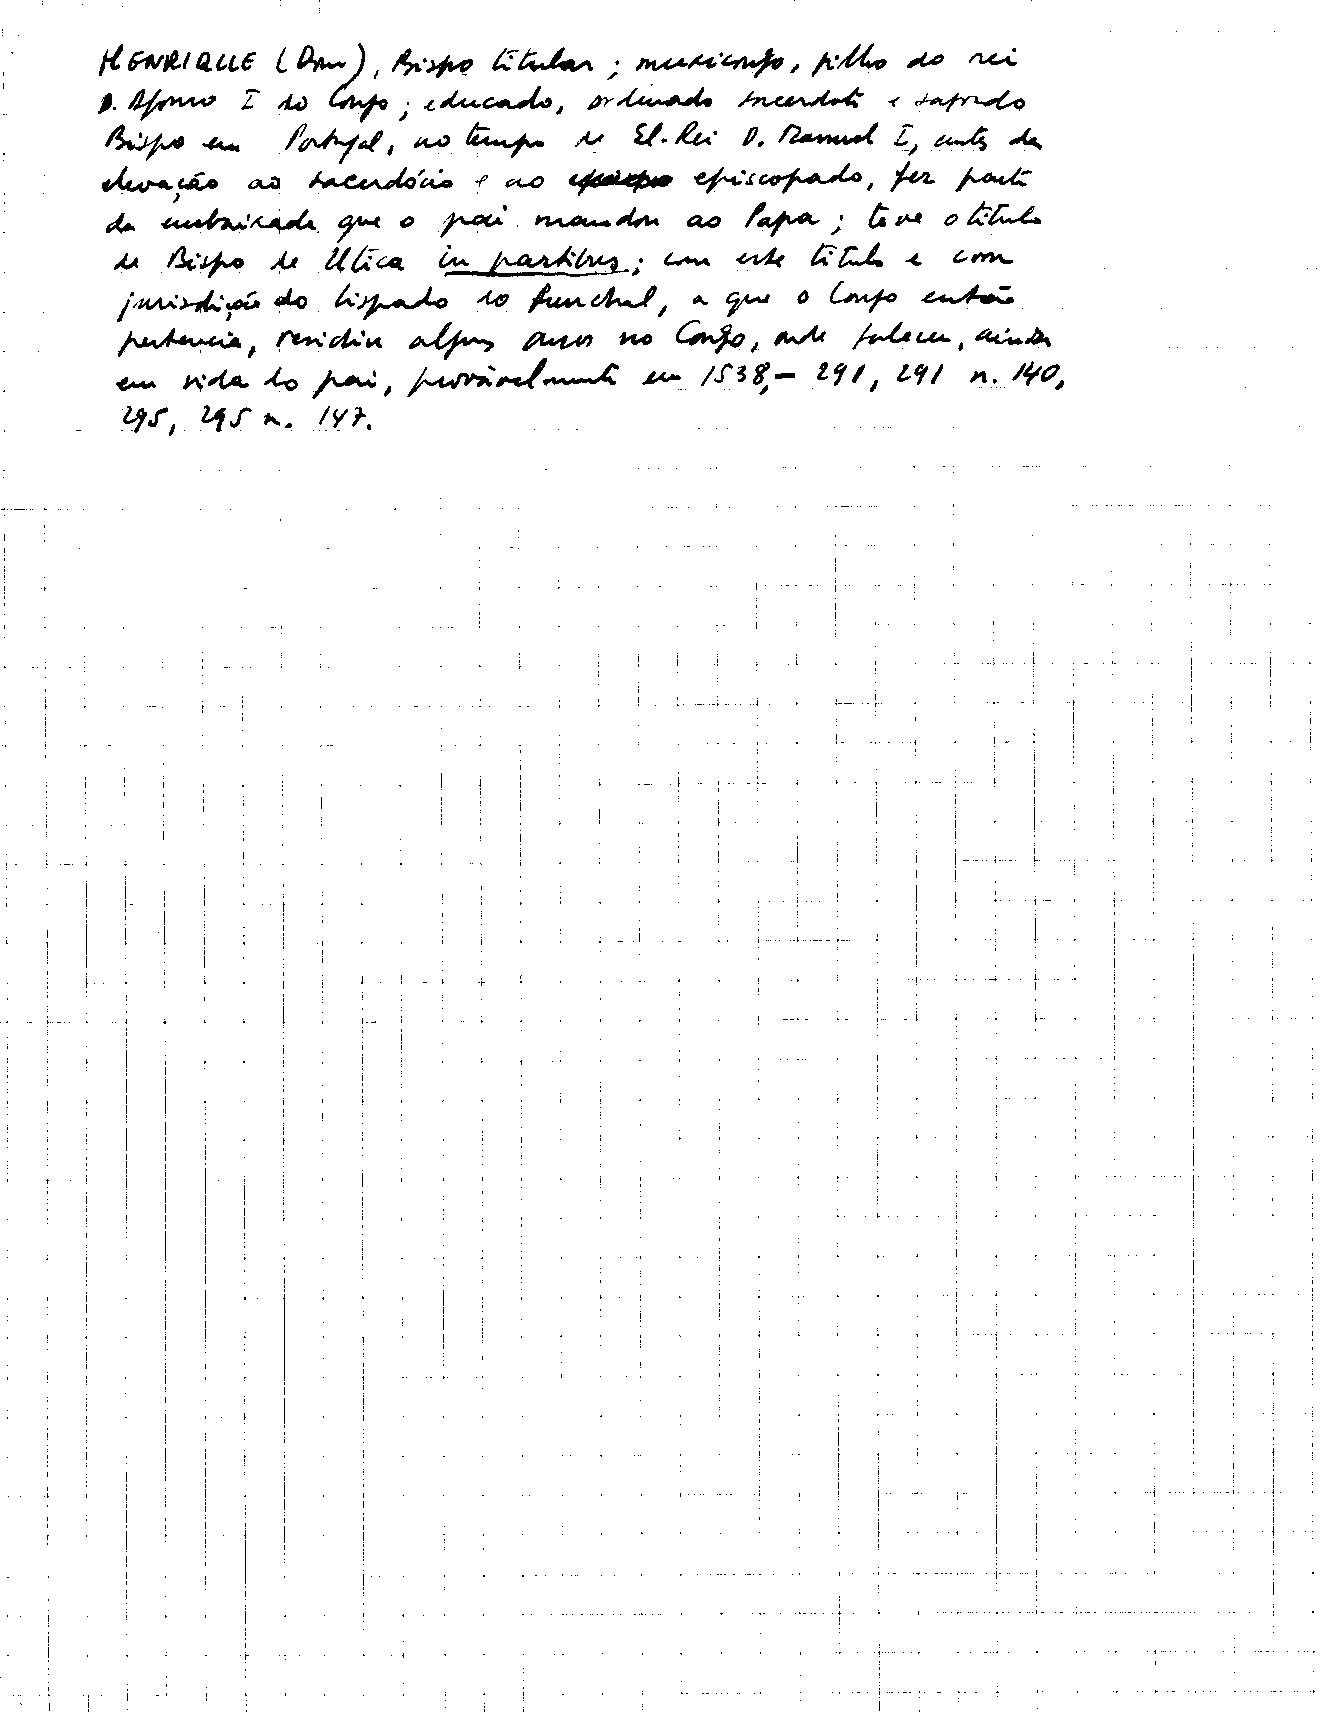 HENRIQUE (Dom), Bispo titular; muxicongo, filho do rei
D. Afonso I do Congo; educado, ordenado sacerdote e sagrado
Bispo em Portugal, no tempo de El-Rei D. Manuel I, antes da
elevação ao sacerdócio e ao episcopado, fez parte
da embaixada que o pai mandou ao Papa; teve o título
de Bispo de Utica in partibus; com este título e com
jurisdição do bispado do Funchal, a que o Congo então
pertencia, residiu alguns anos no Congo, onde faleceu, ainda
em vida do pai, provàvelmente em 1538,- 291, 291 n. 140,
295, 295 n. 147.